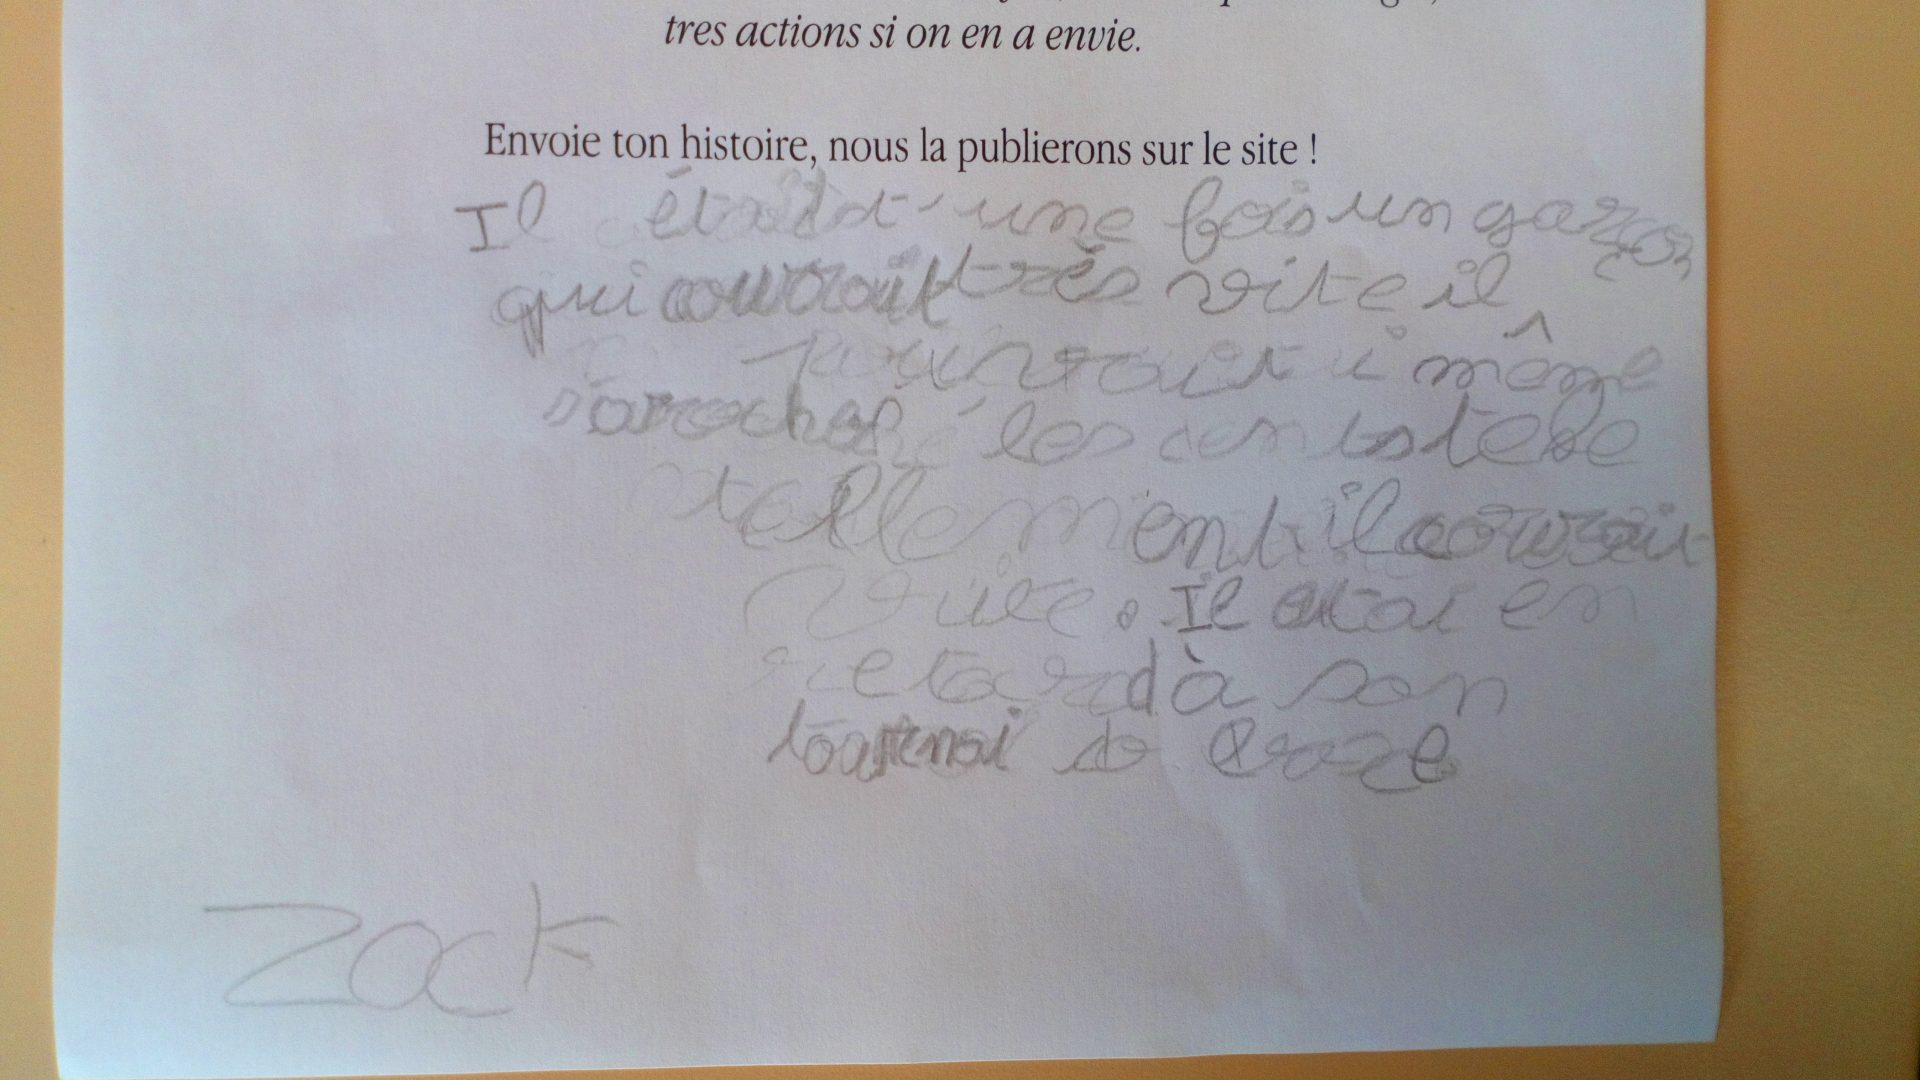 tres actions si on en a envie.
Envoie ton histoire, nous la publierons sur le site !
Il était une fois un garçon
qui courrait très vite il
pouvait même
les
tellement il courait
vite. Il etai en
retard à son
tournoi de
Zack